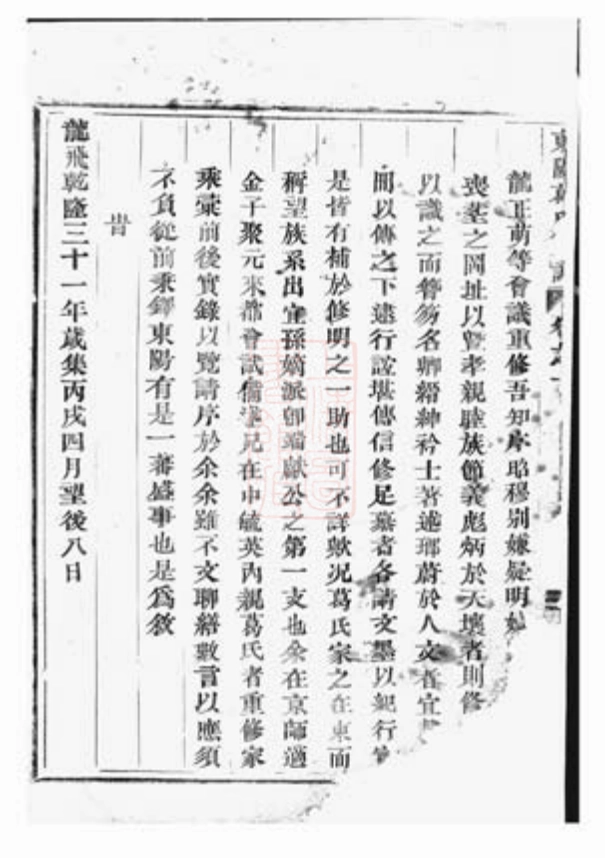 龍正萌等會議重修吾知序昭穆別嫌疑明
喪塟之岡址以曁孝親睦族節義彪炳於天壤者則修
以識之而簪笏名卿縉紳衿士著述瑯蔚於人文者宜
間以傳之下逮行誼堪傳信修足慕者各請文墨以紀行
是皆有補於修明之一助也可不詳歟况葛氏家之在東而
稱望族系出宜孫嫡派卽端獻公之第一支也余在京師適
金子聚元來都會試備述兄在中毓英內親葛氏者重修家
乘彚前後實錄以覽請序於余余雖不文聊繕數言以應須
不負從前乘鐸東陽有是一蕃盛事也是爲敘
旹
龍飛乾隆三十一年歲集丙戌四月望後八日